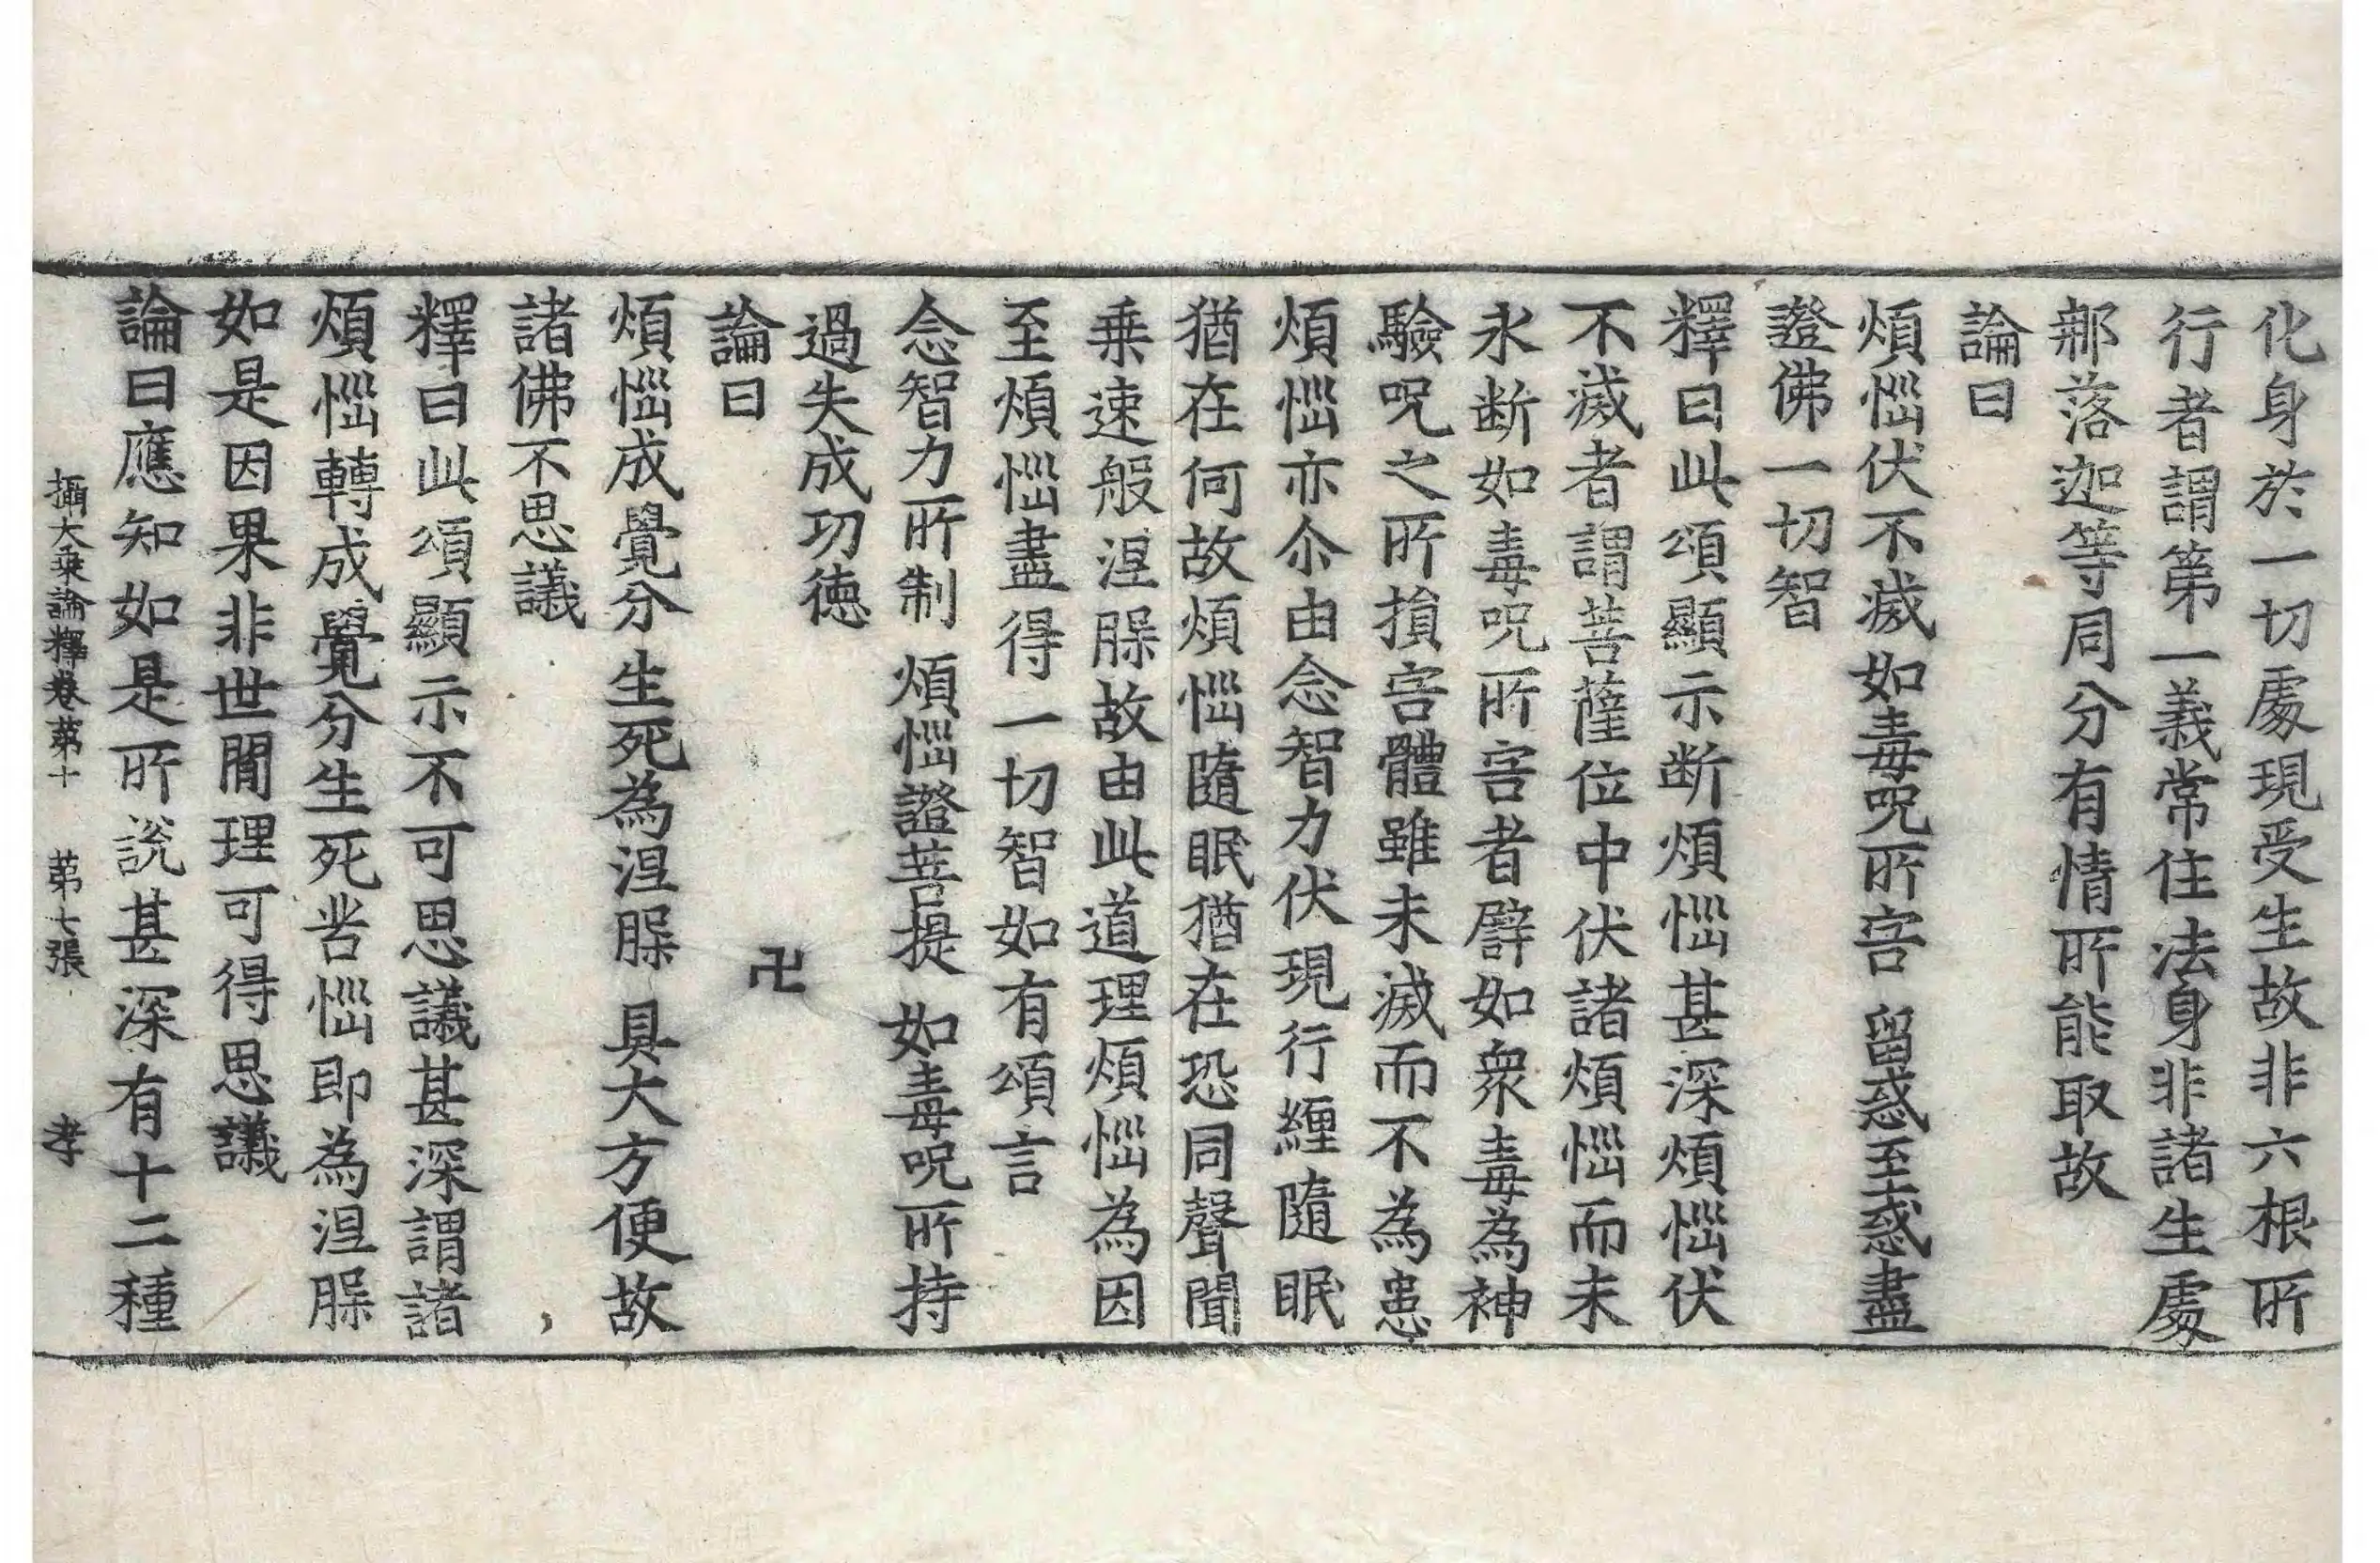 化身於一切處現受生故非六根所
行者謂第一義常住法身非諸生處
㮈落迦等同分有情所能取故
論曰
煩惱伏不滅 如毒呪所害 留惑至惑盡
證佛一切智
釋曰此頌顯示断煩惱甚深煩惱伏
不滅者謂菩薩位中伏諸煩惱而未
永断如毒呪所害者譬如衆毒為神
驗呪之所損害體雖未滅而不為患
煩惱亦尒由念智力伏現行纏隨眠
猶在何故煩惱隨眠猶在恐同聲聞
乗速般涅槃故由此道理煩惱為因
至煩惱盡得一切智如有頌言
念智力所制 煩惱證菩提 如毒呪所持
過失成功徳
論曰
卍
煩惱成覺分 生死為涅槃 具大方便故
諸佛不思議
釋曰此頌顯示不可思議甚深謂諸
煩惱轉成覺分生死苦惱即為涅槃
如是因果非世間理可得思議
論曰應知如是所說甚深有十二種
攝大乗論釋卷第十 第七張 孝